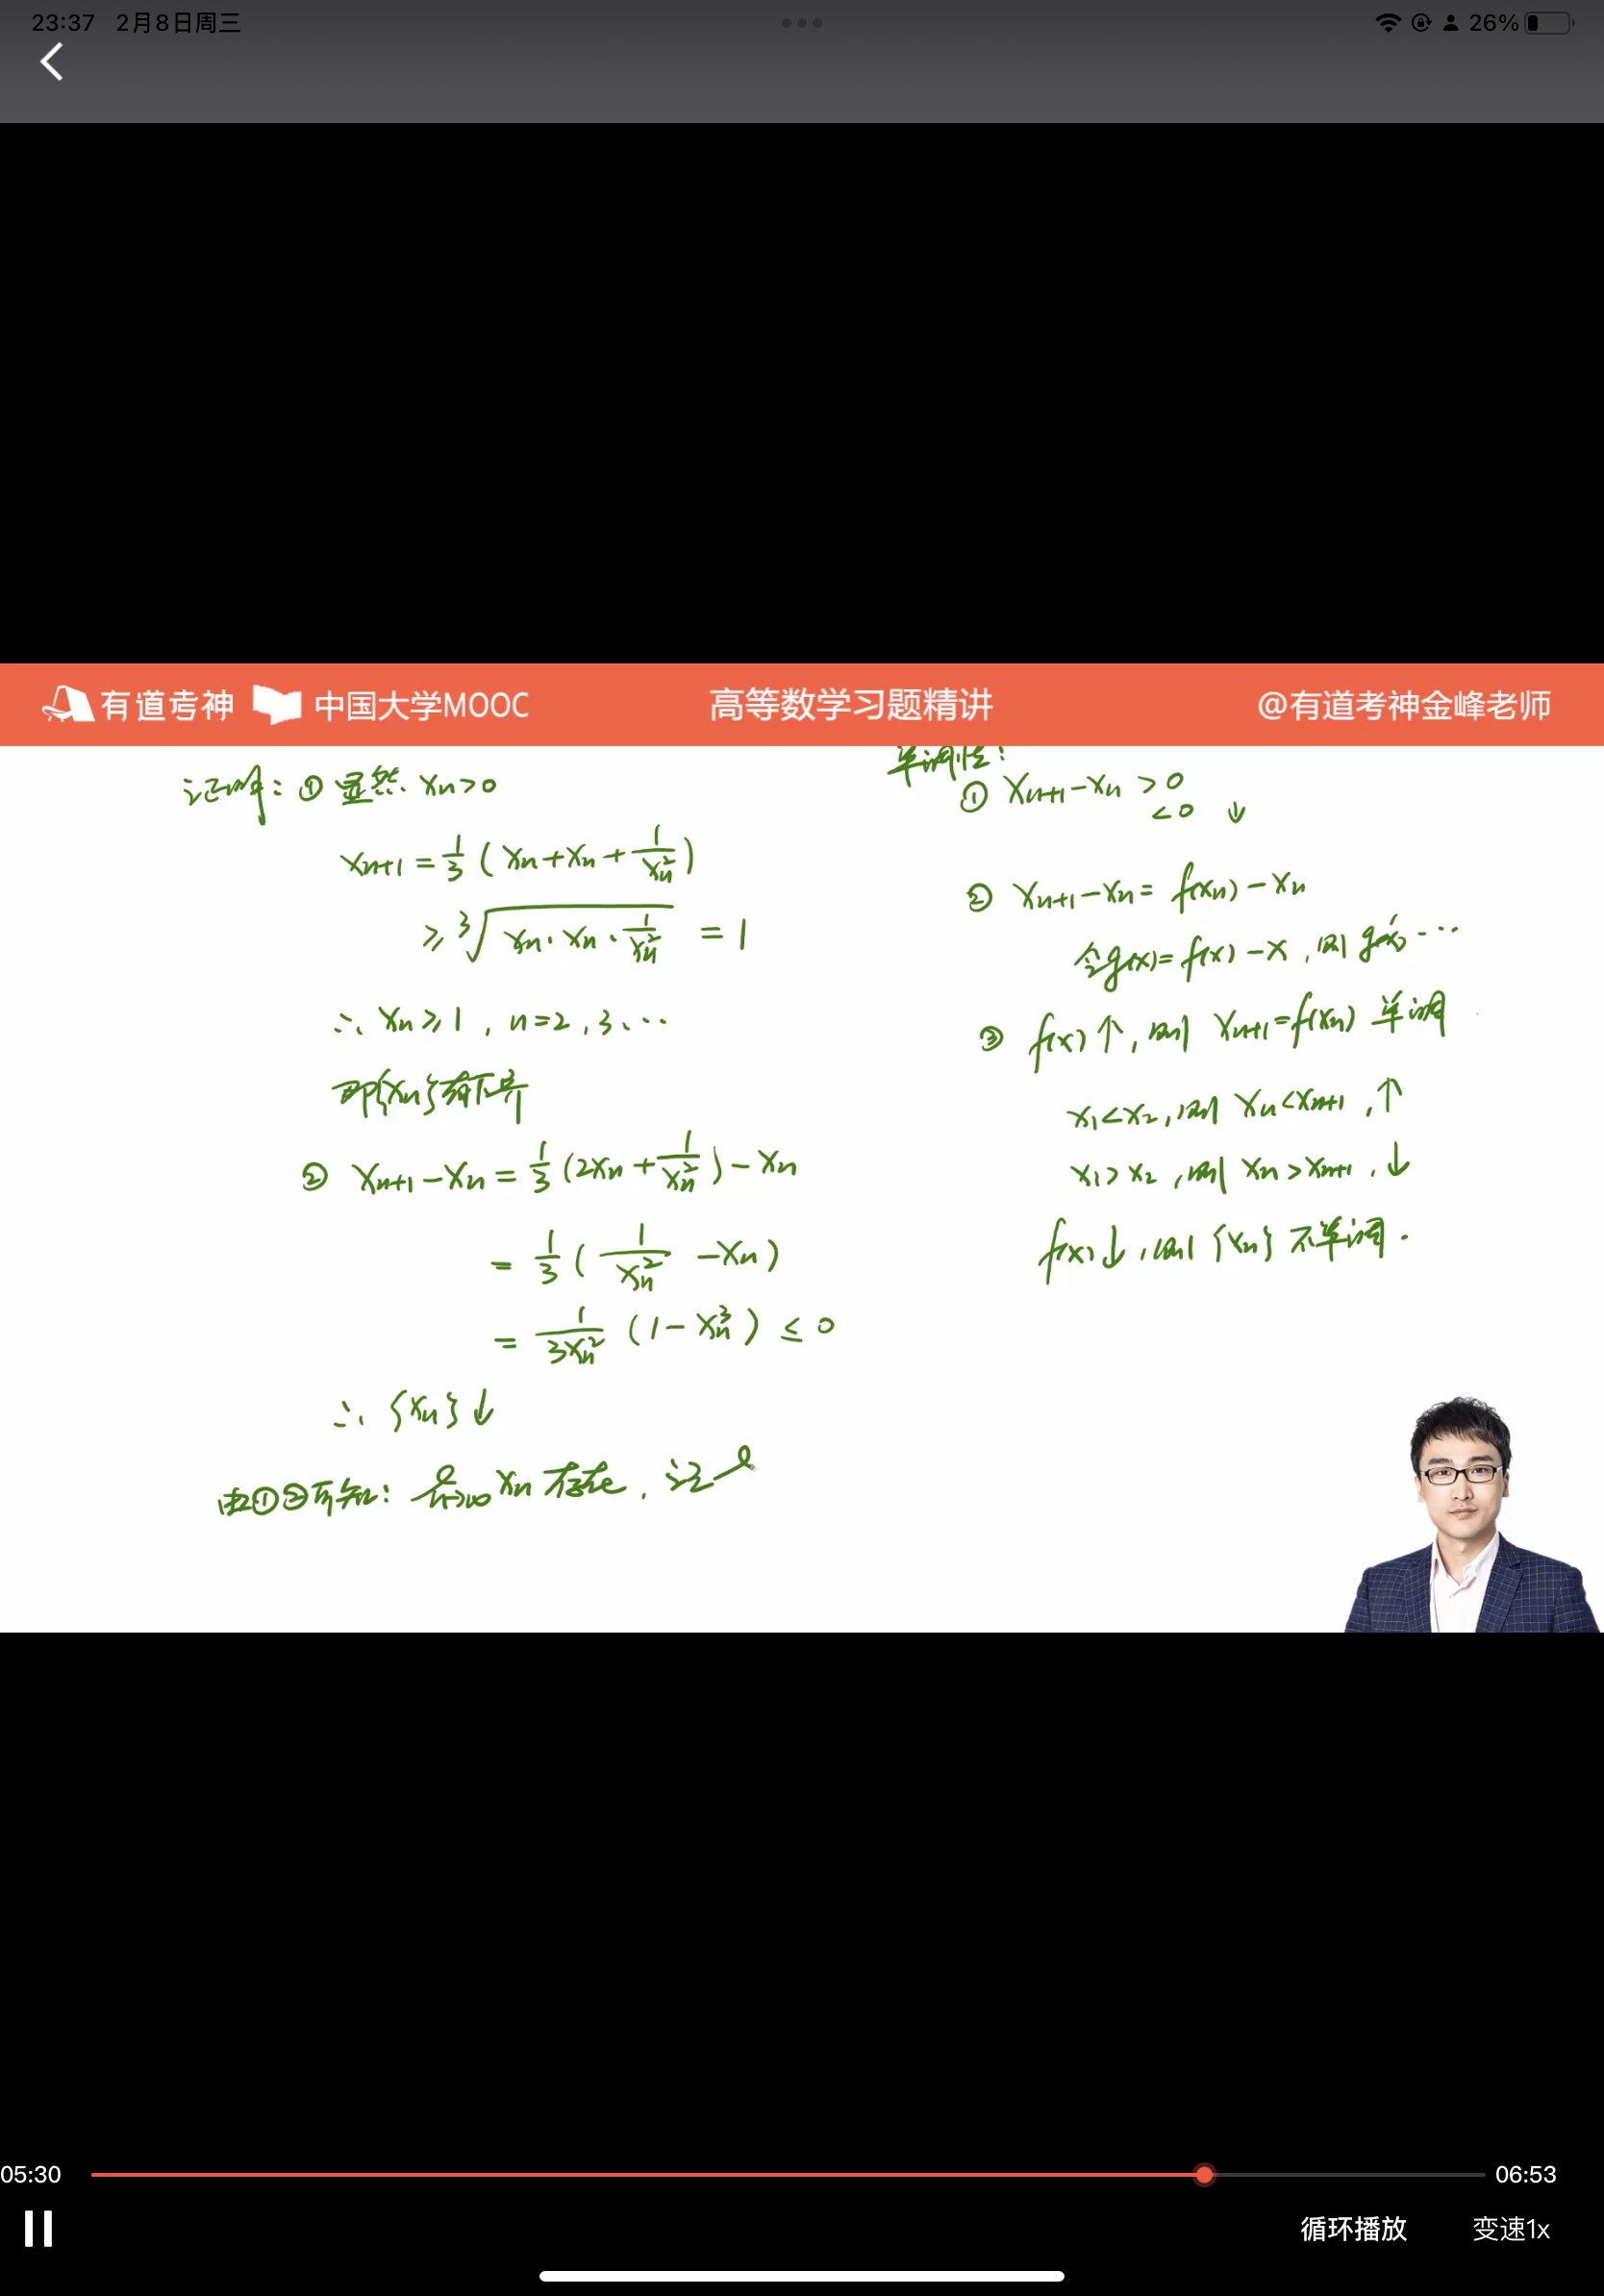 23:37 2月8日周三
26%
有道考神 中国大学MOOC 高等数学习题精讲 @有道考神金峰老师
证明: ① 显然 xₙ>0
xₙ₊₁ = 1/3 (xₙ+xₙ+1/xₙ²)
≥ ∛(xₙ·xₙ·1/xₙ²) = 1
∴ xₙ≥1, n=2,3,…
即{xₙ}有下界
② xₙ₊₁-xₙ = 1/3 (2xₙ+1/xₙ²)-xₙ
= 1/3 (1/xₙ² -xₙ)
= 1/3xₙ² (1-xₙ³) ≤ 0
∴ {xₙ}↓
由①②可知: lim n→∞ xₙ 存在, 记 l
单调性:
① xₙ₊₁-xₙ >0
<0 ↓
② xₙ₊₁-xₙ= f(xₙ)-xₙ
令g(x)= f(x)-x, 则 g'(x)…
③ f(x)↑, 则 xₙ₊₁=f(xₙ) 单调
x₁<x₂, 则 xₙ<xₙ₊₁,↑
x₁>x₂, 则 xₙ>xₙ₊₁,↓
f(x)↓, 则 {xₙ} 不单调.
05:30 06:53
循环播放 变速1x